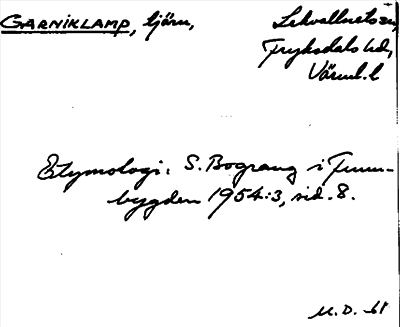 GARNIKLAMP, tjärn, Lekvattnets sn,
Fryksdals hd,
Värml. l
Etymologi: S. Bograng i Finn-
bygden 1954:3, sid. 8.
M.D. -61